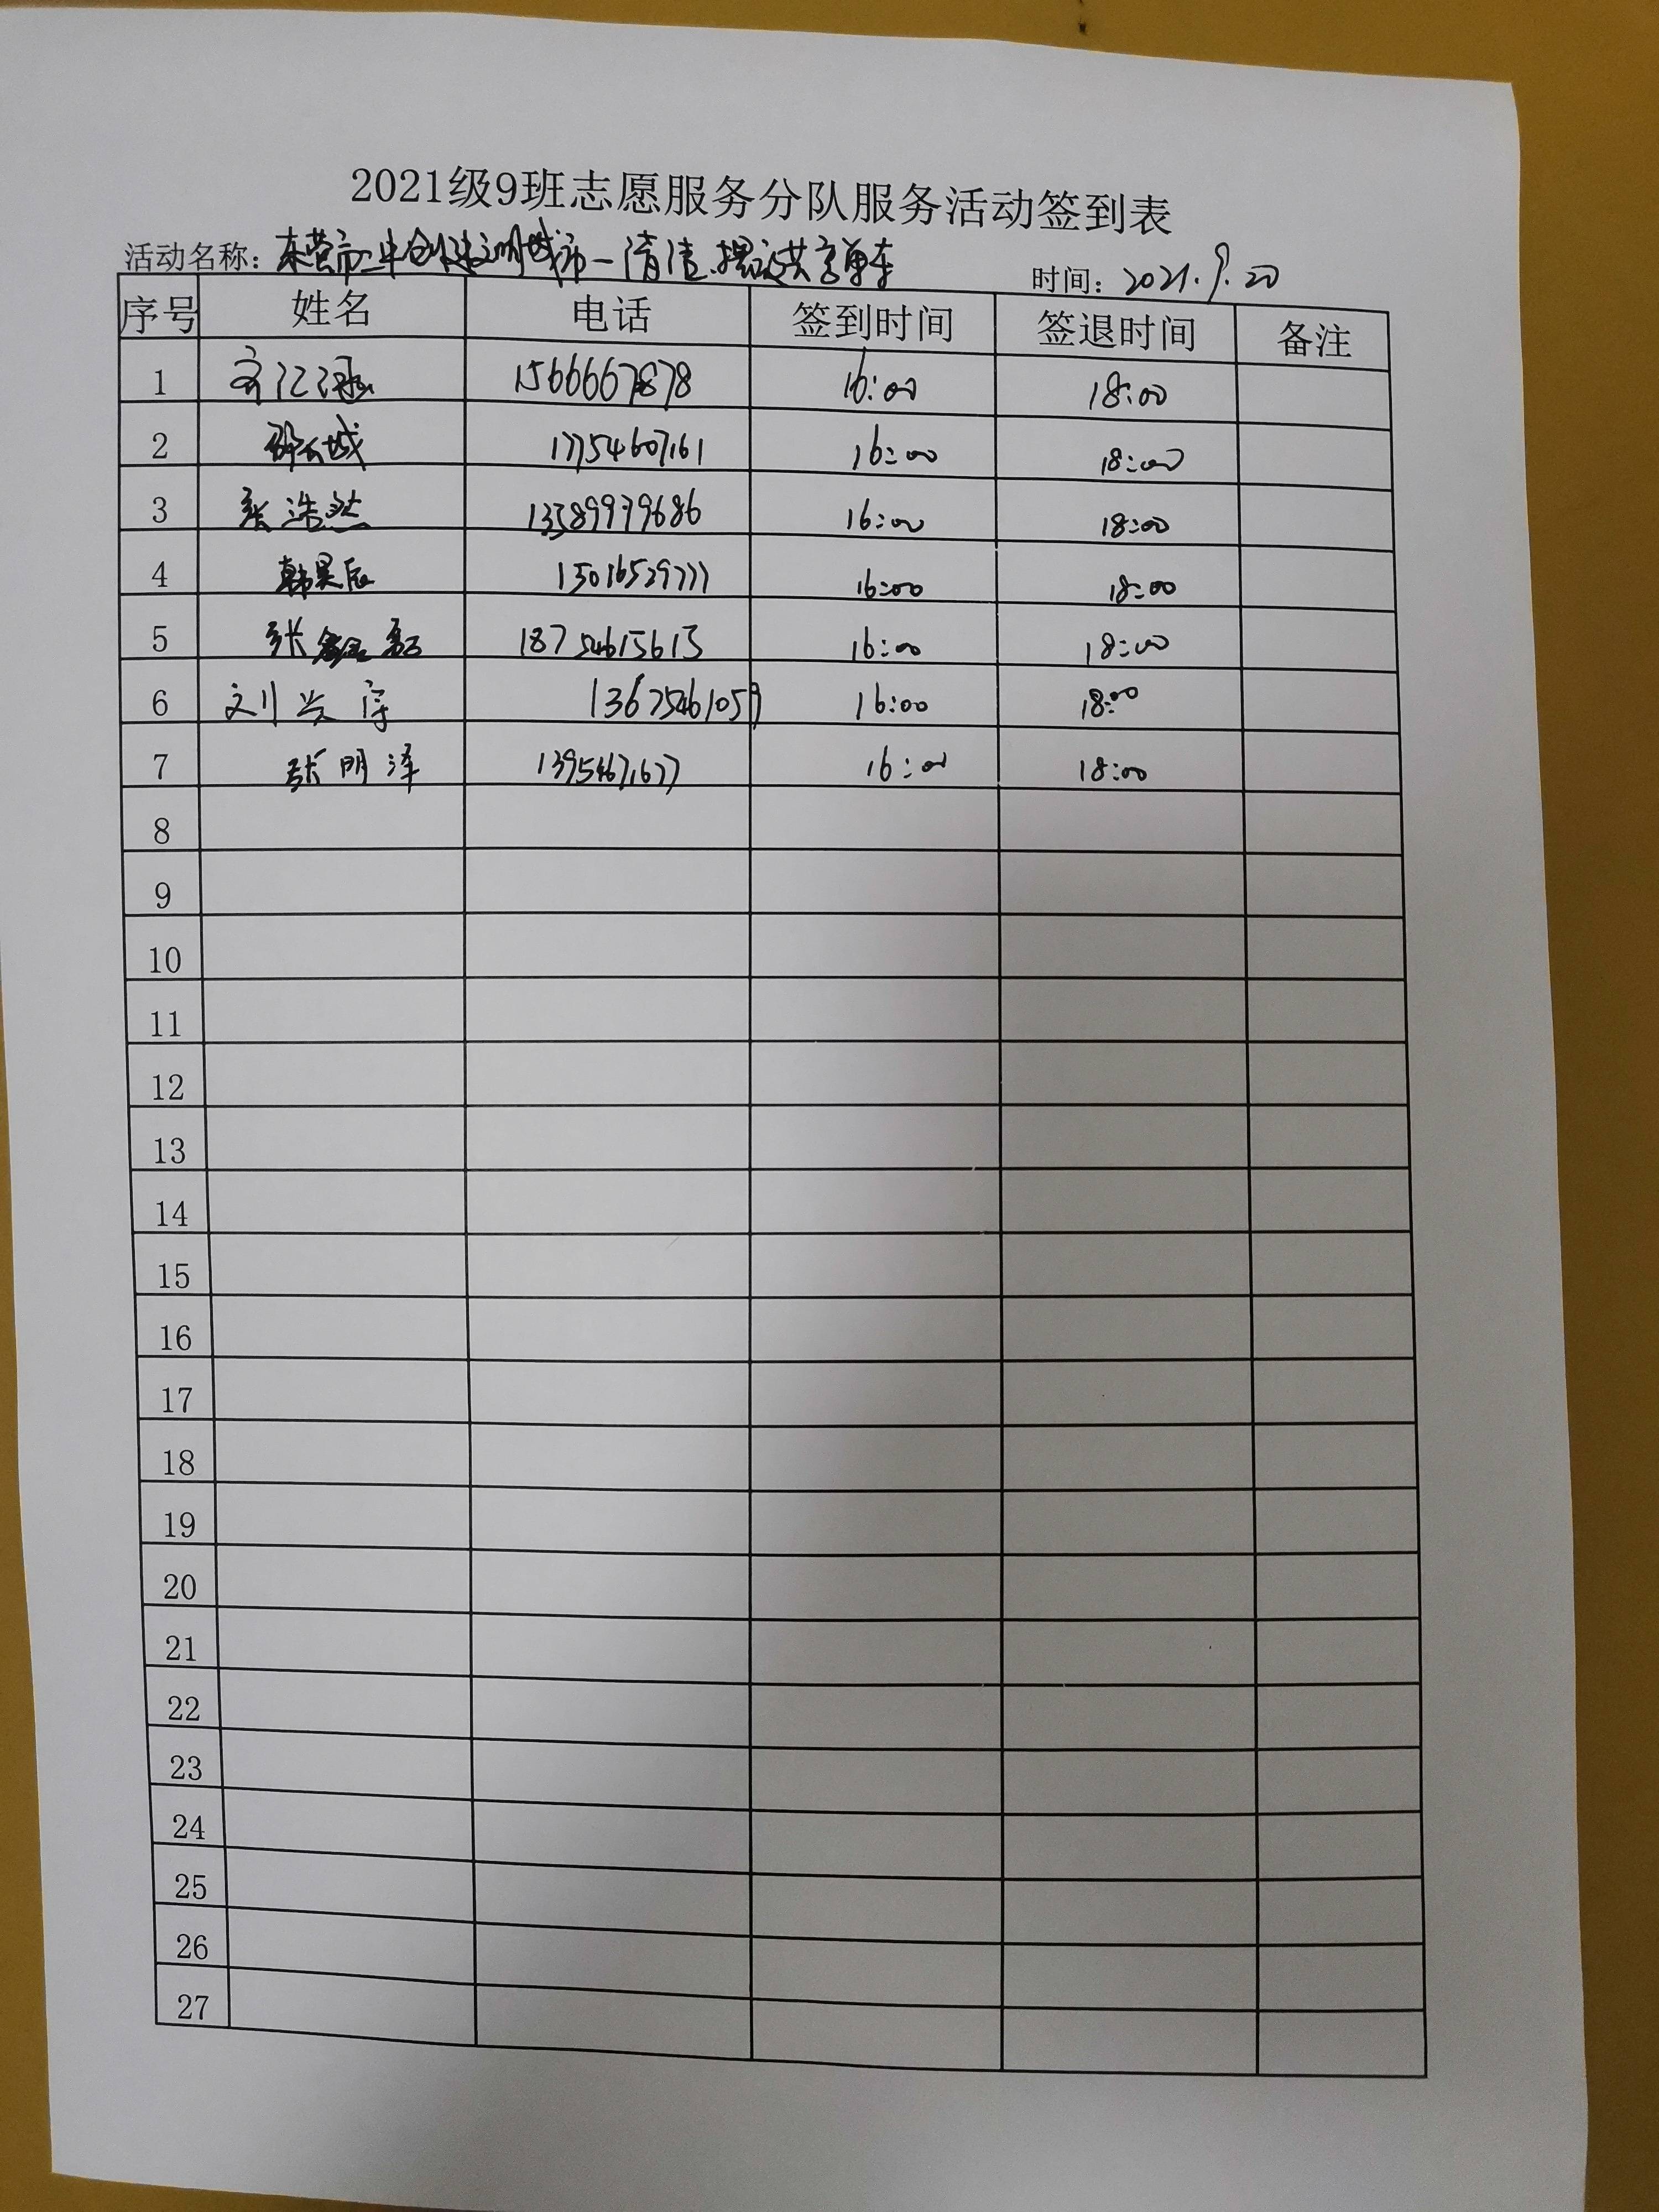 2021级9班志愿服务分队服务活动签到表
活动名称：东营市二中创建文明城市—清洁、摆放共享单车 时间：2021.9.20
序号 姓名 电话 签到时间 签退时间 备注
1 16:00 18:00
2 17754607161 16:00 18:00
3 张浩然 13589979686 16:00 18:00
4 韩昊辰 15016529777 16:00 18:00
5 张鑫磊 18754615615 16:00 18:00
6 刘兴宇 13675461059 16:00 18:00
7 张明泽 13954671677 16:00 18:00
8
9
10
11
12
13
14
15
16
17
18
19
20
21
22
23
24
25
26
27